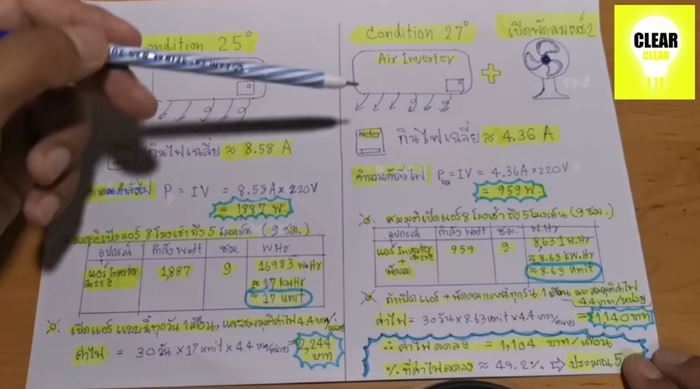 Condition 25°
กินไฟเฉลี่ย ≈ 8.58 A
P = IV = 8.58A × 220V
= 1887 W.
สมมุติเปิดแอร์ 8 โมงเช้า ถึง 5 โมงเย็น (9 ชม.)
อุปกรณ์ กำลัง watt ชม. WHr
แอร์ Inverter 1,887 9 16983 W.Hr
≈ 17 kWHr
≈ 17 unit
เปิดแอร์ แบบนี้ทุกวัน 1 เดือน, และสมมุติค่าไฟ 4.4 บาท/หน่วย
ค่าไฟ = 30 วัน × 17 unit × 4.4 บาท/หน่วย = 2,244 บาท
Condition 27° เปิดพัดลมเบอร์ 2
Air Inverter +
Meter กินไฟเฉลี่ย ≈ 4.36 A
คำนวณกำลังไฟ P = IV = 4.36A × 220V
= 959 W.
สมมุติเปิดแอร์ 8 โมงเช้า ถึง 5 โมงเย็น (9 ชม.)
อุปกรณ์ กำลัง watt ชม. W.Hr
แอร์ Inverter + พัดลม 959 9 8,631 W.Hr
≈ 8.63 kWHr
≈ 8.63 unit
ถ้าเปิดแอร์ + พัดลมแบบนี้ทุกวัน 1 เดือน, และสมมุติค่าไฟ
4.4 บาท/หน่วย
ค่าไฟ = 30 วัน × 8.63 unit × 4.4 บาท/หน่วย = 1,140 บาท
∴ ค่าไฟลดลง = 1,104 บาท/เดือน
% ที่ค่าไฟลดลง ≈ 49.2% ⇒ ประมาณ
CLEAR
CLEAR